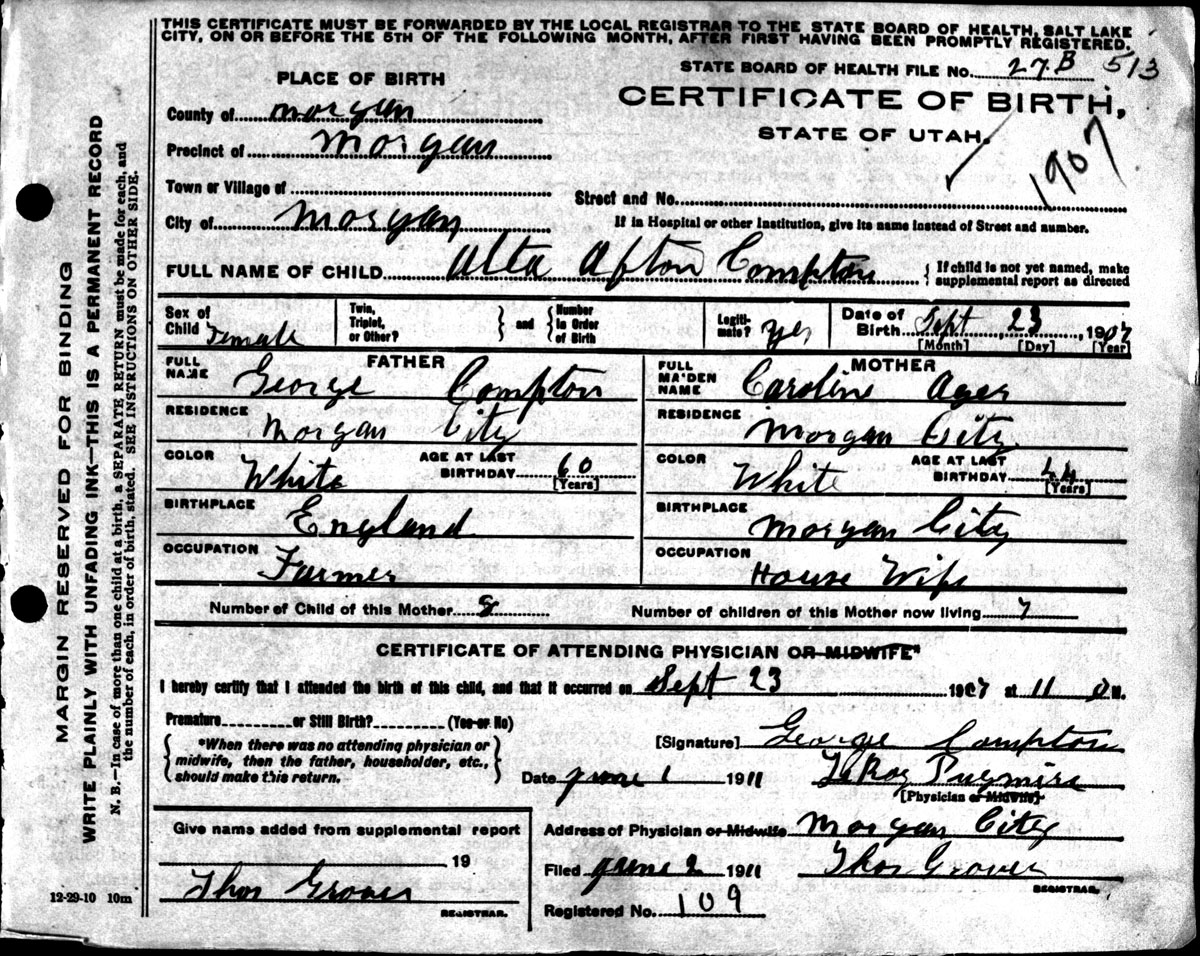 THIS CERTIFICATE MUST BE FORWARDED BY THE LOCAL REGISTRAR TO THE STATE BOARD OF HEALTH, SALT LAKE
CITY, ON OR BEFORE THE 5TH OF THE FOLLOWING MONTH, AFTER FIRST HAVING BEEN PROMPTLY REGISTERED.
PLACE OF BIRTH
STATE BOARD OF HEALTH FILE No. 27B 513
CERTIFICATE OF BIRTH,
STATE OF UTAH.
1907
County of Morgan
Precinct of Morgan
Town or Village of
Street and No.
City of Morgan
If in Hospital or other Institution, give its name instead of Street and number.
FULL NAME OF CHILD Alta Afton Compton
{ If child is not yet named, make
supplemental report as directed
Sex of Child Female
Twin, Triplet, or Other? } and { Number in Order of Birth
Legitimate? yes
Date of Birth Sept, 23, 1907
[Month] [Day] [Year]
FATHER
FULL NAME George Compton
RESIDENCE Morgan City
COLOR White
AGE AT LAST BIRTHDAY 60
[Years]
BIRTHPLACE England
OCCUPATION Farmer
MOTHER
FULL MAIDEN NAME Caroline Ager
RESIDENCE Morgan City
COLOR White
AGE AT LAST BIRTHDAY 44
[Years]
BIRTHPLACE Morgan City
OCCUPATION House Wife
Number of Child of this Mother 8
Number of children of this Mother now living 7
CERTIFICATE OF ATTENDING PHYSICIAN OR MIDWIFE*
I hereby certify that I attended the birth of this child, and that it occurred on Sept 23 1907 at 11 M.
Premature or Still Birth? (Yes or No)
{ *When there was no attending physician or
midwife, then the father, householder, etc.,
should make this return. }
[Signature] George Compton
Date June 1 1911
LeRoy Pugmire
[Physician or Midwife]
Give name added from supplemental report
19
Thos Grover
REGISTRAR.
Address of Physician or Midwife Morgan City
Filed June 2 1911 Thos Grover
REGISTRAR.
Registered No. 109
MARGIN RESERVED FOR BINDING
WRITE PLAINLY WITH UNFADING INK—THIS IS A PERMANENT RECORD
N. B.—In case of more than one child at a birth, a SEPARATE RETURN must be made for each, and
the number of each, in order of birth, stated. SEE INSTRUCTIONS ON OTHER SIDE.
12-29-10 10m